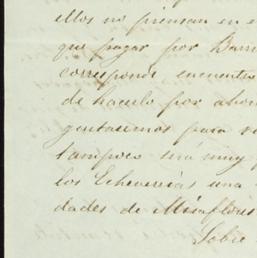 ellos no piensan en e
que pagar por Barr
corresponde, encuentro
de hacerlo por ahor
gentasimos para v
tampoco será muy f
los Echeverrías una
dades de Miraflores
Sobre